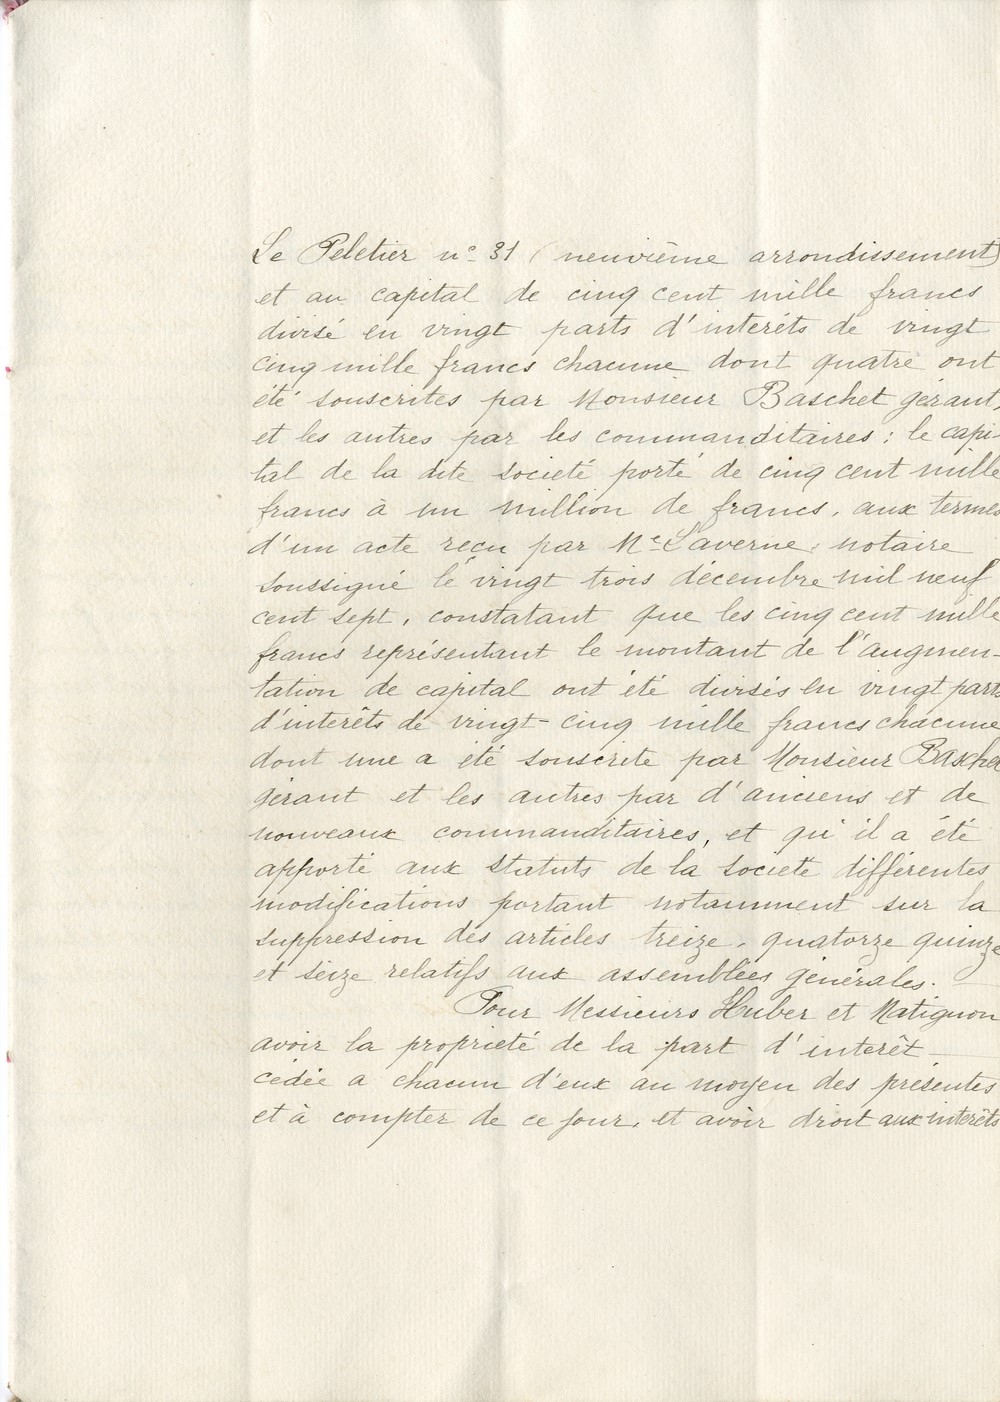 Le Peletier n° 31 (neuvième arrondissement)
et au capital de cinq cent mille francs
divisé en vingt parts d'intérêts de vingt
cinq mille francs chacune dont quatre ont
été souscrites par Monsieur Baschet gérant,
et les autres par les commanditaires ; le capi-
tal de la dite société porté de cinq cent mille
francs à un million de francs, aux termes
d'un acte reçu par Me Laverne, notaire
soussigné le vingt trois décembre mil neuf
cent sept, constatant que les cinq cent mille
francs représentant le montant de l'augmen-
tation de capital ont été divisés en vingt parts
d'intérêts de vingt-cinq mille francs chacune
dont une a été souscrite par Monsieur Baschet
gérant et les autres par d'anciens et de
nouveaux commanditaires, et qu'il a été
apporté aux statuts de la société différentes
modifications portant notamment sur la
suppression des articles treize, quatorze quinze
et seize relatifs aux assemblées générales.
Pour Messieurs Huber et Matignon
avoir la propriété de la part d'intérêt
cédée a chacun d'eux au moyen des présentes
et à compter de ce jour, et avoir droit aux intérêts